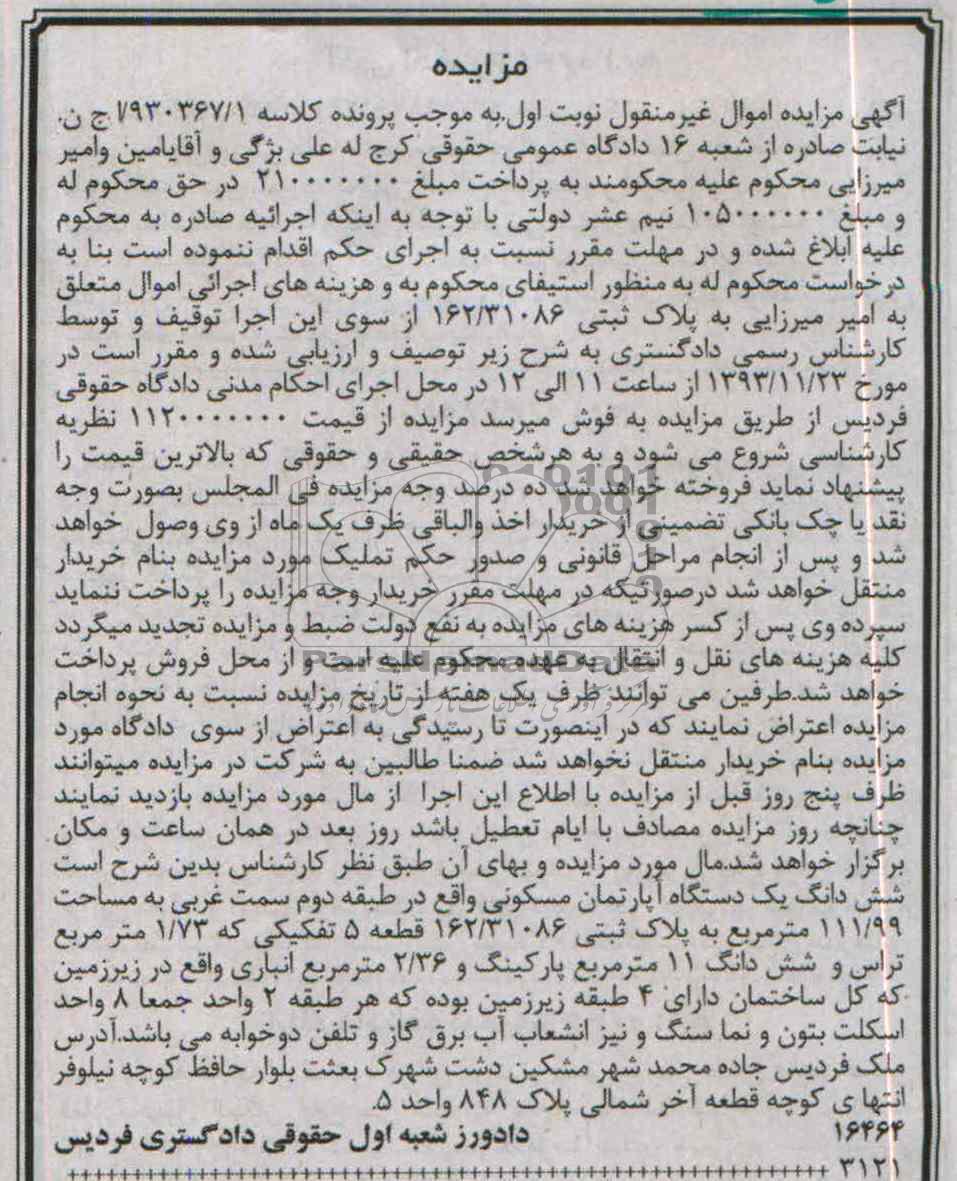 مزایده
آگهی مزایده اموال غیرمنقول نوبت اول.به موجب پرونده کلاسه ۹۳۰۳۶۷/۱/ا ج ن.
نیابت صادره از شعبه ۱۶ دادگاه عمومی حقوقی کرج له علی بژگی و آقایامین وامیر
میرزایی محکوم علیه محکومند به پرداخت مبلغ ۲۱۰۰۰۰۰۰۰۰ در حق محکوم له
و مبلغ ۱۰۵۰۰۰۰۰۰ نیم عشر دولتی با توجه به اینکه اجرائیه صادره به محکوم
علیه ابلاغ شده و در مهلت مقرر نسبت به اجرای حکم اقدام ننموده است بنا به
درخواست محکوم له به منظور استیفای محکوم به و هزینه های اجرائی اموال متعلق
به امیر میرزایی به پلاک ثبتی ۱۶۲/۳۱۰۸۶ از سوی این اجرا توقیف و توسط
کارشناس رسمی دادگستری به شرح زیر توصیف و ارزیابی شده و مقرر است در
مورخ ۱۳۹۳/۱۱/۲۳ از ساعت ۱۱ الی ۱۲ در محل اجرای احکام مدنی دادگاه حقوقی
فردیس از طریق مزایده به فوش میرسد مزایده از قیمت ۱۱۲۰۰۰۰۰۰۰ نظریه
کارشناسی شروع می شود و به هرشخص حقیقی و حقوقی که بالاترین قیمت را
پیشنهاد نماید فروخته خواهد شد ده درصد وجه مزایده فی المجلس بصورت وجه
نقد یا چک بانکی تضمینی از خریدار اخذ والباقی ظرف یک ماه از وی وصول خواهد
شد و پس از انجام مراحل قانونی و صدور حکم تملیک مورد مزایده بنام خریدار
منتقل خواهد شد درصورتیکه در مهلت مقرر خریدار وجه مزایده را پرداخت ننماید
سپرده وی پس از کسر هزینه های مزایده به نفع دولت ضبط و مزایده تجدید میگردد
کلیه هزینه های نقل و انتقال به عهده محکوم علیه است و از محل فروش پرداخت
خواهد شد.طرفین می توانند ظرف یک هفته از تاریخ مزایده نسبت به نحوه انجام
مزایده اعتراض نمایند که در اینصورت تا رسیدگی به اعتراض از سوی دادگاه مورد
مزایده بنام خریدار منتقل نخواهد شد ضمنا طالبین به شرکت در مزایده میتوانند
ظرف پنج روز قبل از مزایده با اطلاع این اجرا از مال مورد مزایده بازدید نمایند
چنانچه روز مزایده مصادف با ایام تعطیل باشد روز بعد در همان ساعت و مکان
برگزار خواهد شد.مال مورد مزایده و بهای آن طبق نظر کارشناس بدین شرح است
شش دانگ یک دستگاه آپارتمان مسکونی واقع در طبقه دوم سمت غربی به مساحت
۱۱۱/۹۹ مترمربع به پلاک ثبتی ۱۶۲/۳۱۰۸۶ قطعه ۵ تفکیکی که ۱/۷۳ متر مربع
تراس و شش دانگ ۱۱ مترمربع پارکینگ و ۲/۳۶ مترمربع انباری واقع در زیرزمین
که کل ساختمان دارای ۴ طبقه زیرزمین بوده که هر طبقه ۲ واحد جمعا ۸ واحد
اسکلت بتون و نما سنگ و نیز انشعاب آب برق گاز و تلفن دوخوابه می باشد.آدرس
ملک فردیس جاده محمد شهر مشکین دشت شهرک بعثت بلوار حافظ کوچه نیلوفر
انتها ی کوچه قطعه آخر شمالی پلاک ۸۴۸ واحد ۵.
۱۶۴۶۴ دادورز شعبه اول حقوقی دادگستری فردیس
۳۱۲۱